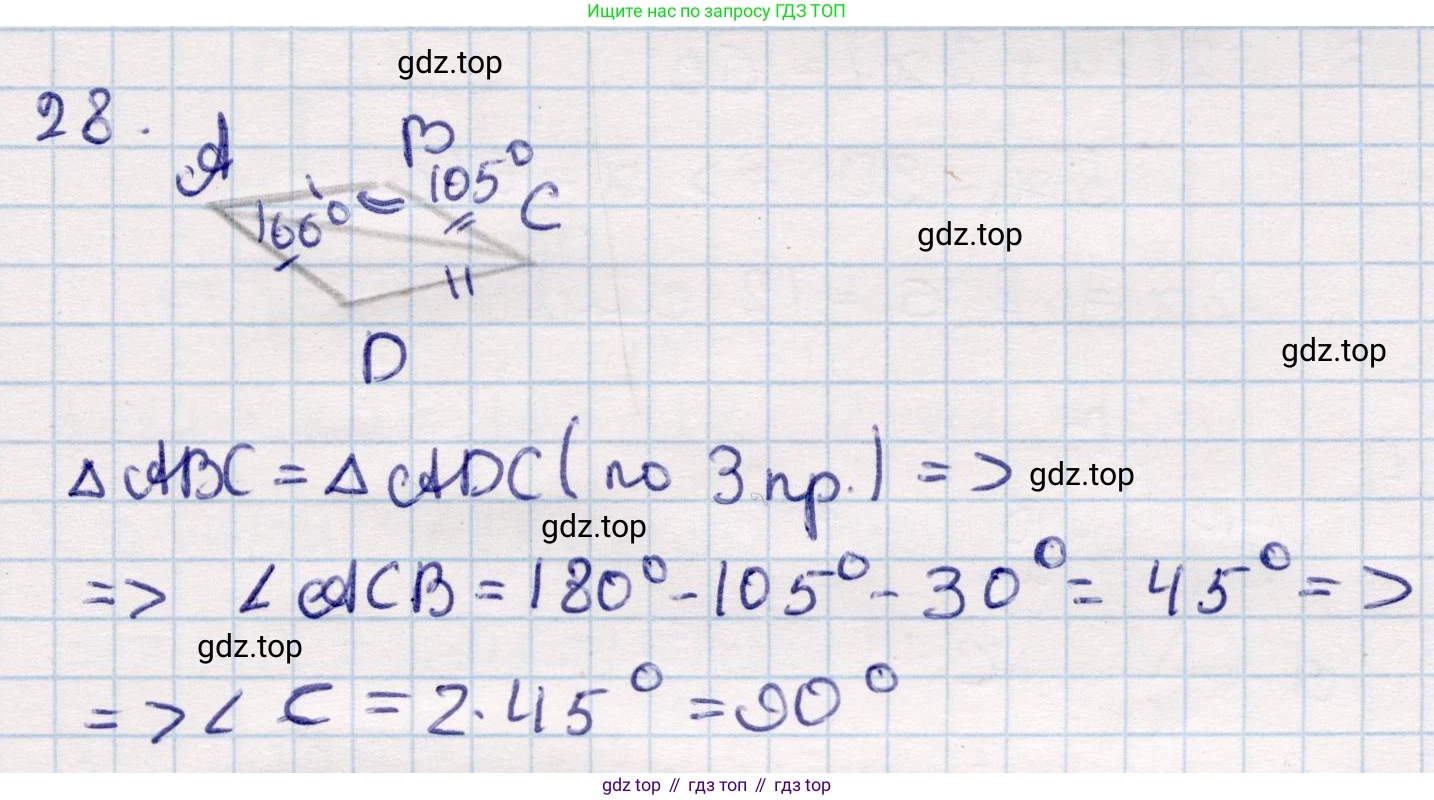 Ищите нас по запросу ГДЗ ТОП
gdz.top
28.
A
B
105°
C
gdz.top
D
gdz.top
△ABC = △ADC (по 3 пр.) =>
gdz.top
gdz.top
=> ∠ACB = 180° - 105° - 30° = 45° =>
gdz.top
=> ∠C = 2·45° = 90°
gdz top // гдз топ // гдз top